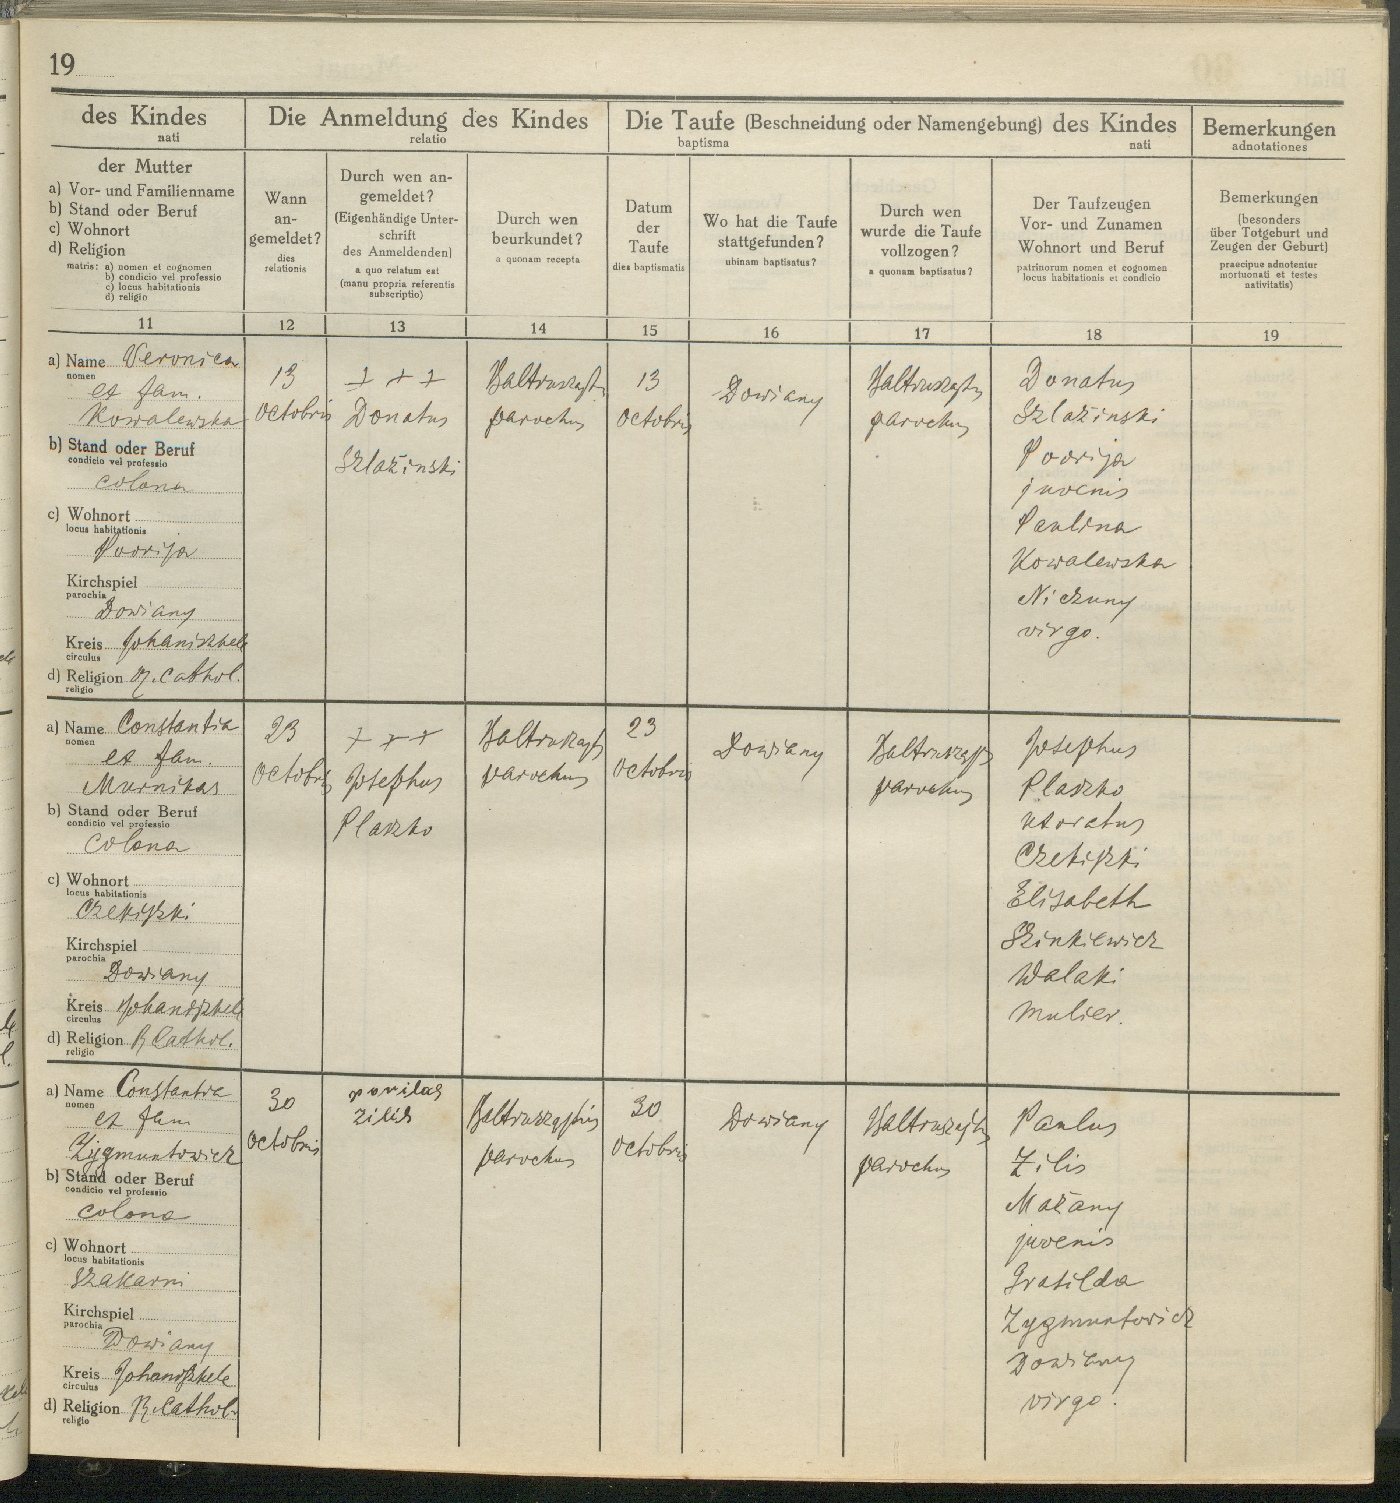 19
des Kindes
nati
Die Anmeldung des Kindes
relatio
Die Taufe (Beschneidung oder Namengebung) des Kindes
baptisma nati
Bemerkungen
adnotationes
der Mutter
a) Vor- und Familienname
b) Stand oder Beruf
c) Wohnort
d) Religion
matris: a) nomen et cognomen
b) condicio vel professio
c) locus habitationis
d) religio
Wann
an-
gemeldet?
dies
relationis
Durch wen an-
gemeldet?
(Eigenhändige Unter-
schrift
des Anmeldenden)
a quo relatum est
(manu propria referentis
subscriptio)
Durch wen
beurkundet?
a quonam recepta
Datum
der
Taufe
dies baptismatis
Wo hat die Taufe
stattgefunden?
ubinam baptisatus?
Durch wen
wurde die Taufe
vollzogen?
a quonam baptisatus?
Der Taufzeugen
Vor- und Zunamen
Wohnort und Beruf
patrinorum nomen et cognomen
locus habitationis et condicio
Bemerkungen
(besonders
über Totgeburt und
Zeugen der Geburt)
praecipue adnotentur
mortuonati et testes
nativitatis)
11 12 13 14 15 16 17 18 19
a) Name Veronica
nomen
et fam.
Kowalewska
b) Stand oder Beruf
condicio vel professio
colona
c) Wohnort
locus habitationis
Povrija
Kirchspiel
parochia
Dowiany
Kreis Johaniszkele
circulus
d) Religion R. Cathol.
religio
13
Octobris
+ + +
Donatus
Szlażinski
parochus
13
Octobris
Dowiany
parochus
Donatus
Szlażinski
Povrija
juvenis
Paulina
Kowalewska
Niczuny
virgo.
a) Name Constantia
nomen
et fam.
Murnikas
b) Stand oder Beruf
condicio vel professio
Colona
c) Wohnort
locus habitationis
Czekiszki
Kirchspiel
parochia
Dowiany
Kreis Johaniszkele
circulus
d) Religion R. Cathol.
religio
23
Octobris
+ + +
Josephus
Plaszko
parochus
23
Octobris
Dowiany
parochus
Josephus
Plaszko
uxoratus
Czekiszki
Elisabeth
Szinkiewicz
Walaki
mulier.
a) Name Constantia
nomen
et fam
Zygmuntowicz
b) Stand oder Beruf
condicio vel professio
colona
c) Wohnort
locus habitationis
Szakarni
Kirchspiel
parochia
Dowiany
Kreis Johaniszkele
circulus
d) Religion R. Cathol.
religio
30
Octobris
povilas
zilis
parochus
30
Octobris
Dowiany
parochus
Paulus
Zilis
Mażany
juvenis
Gratilda
Zygmuntowicz
Dowiany
virgo.